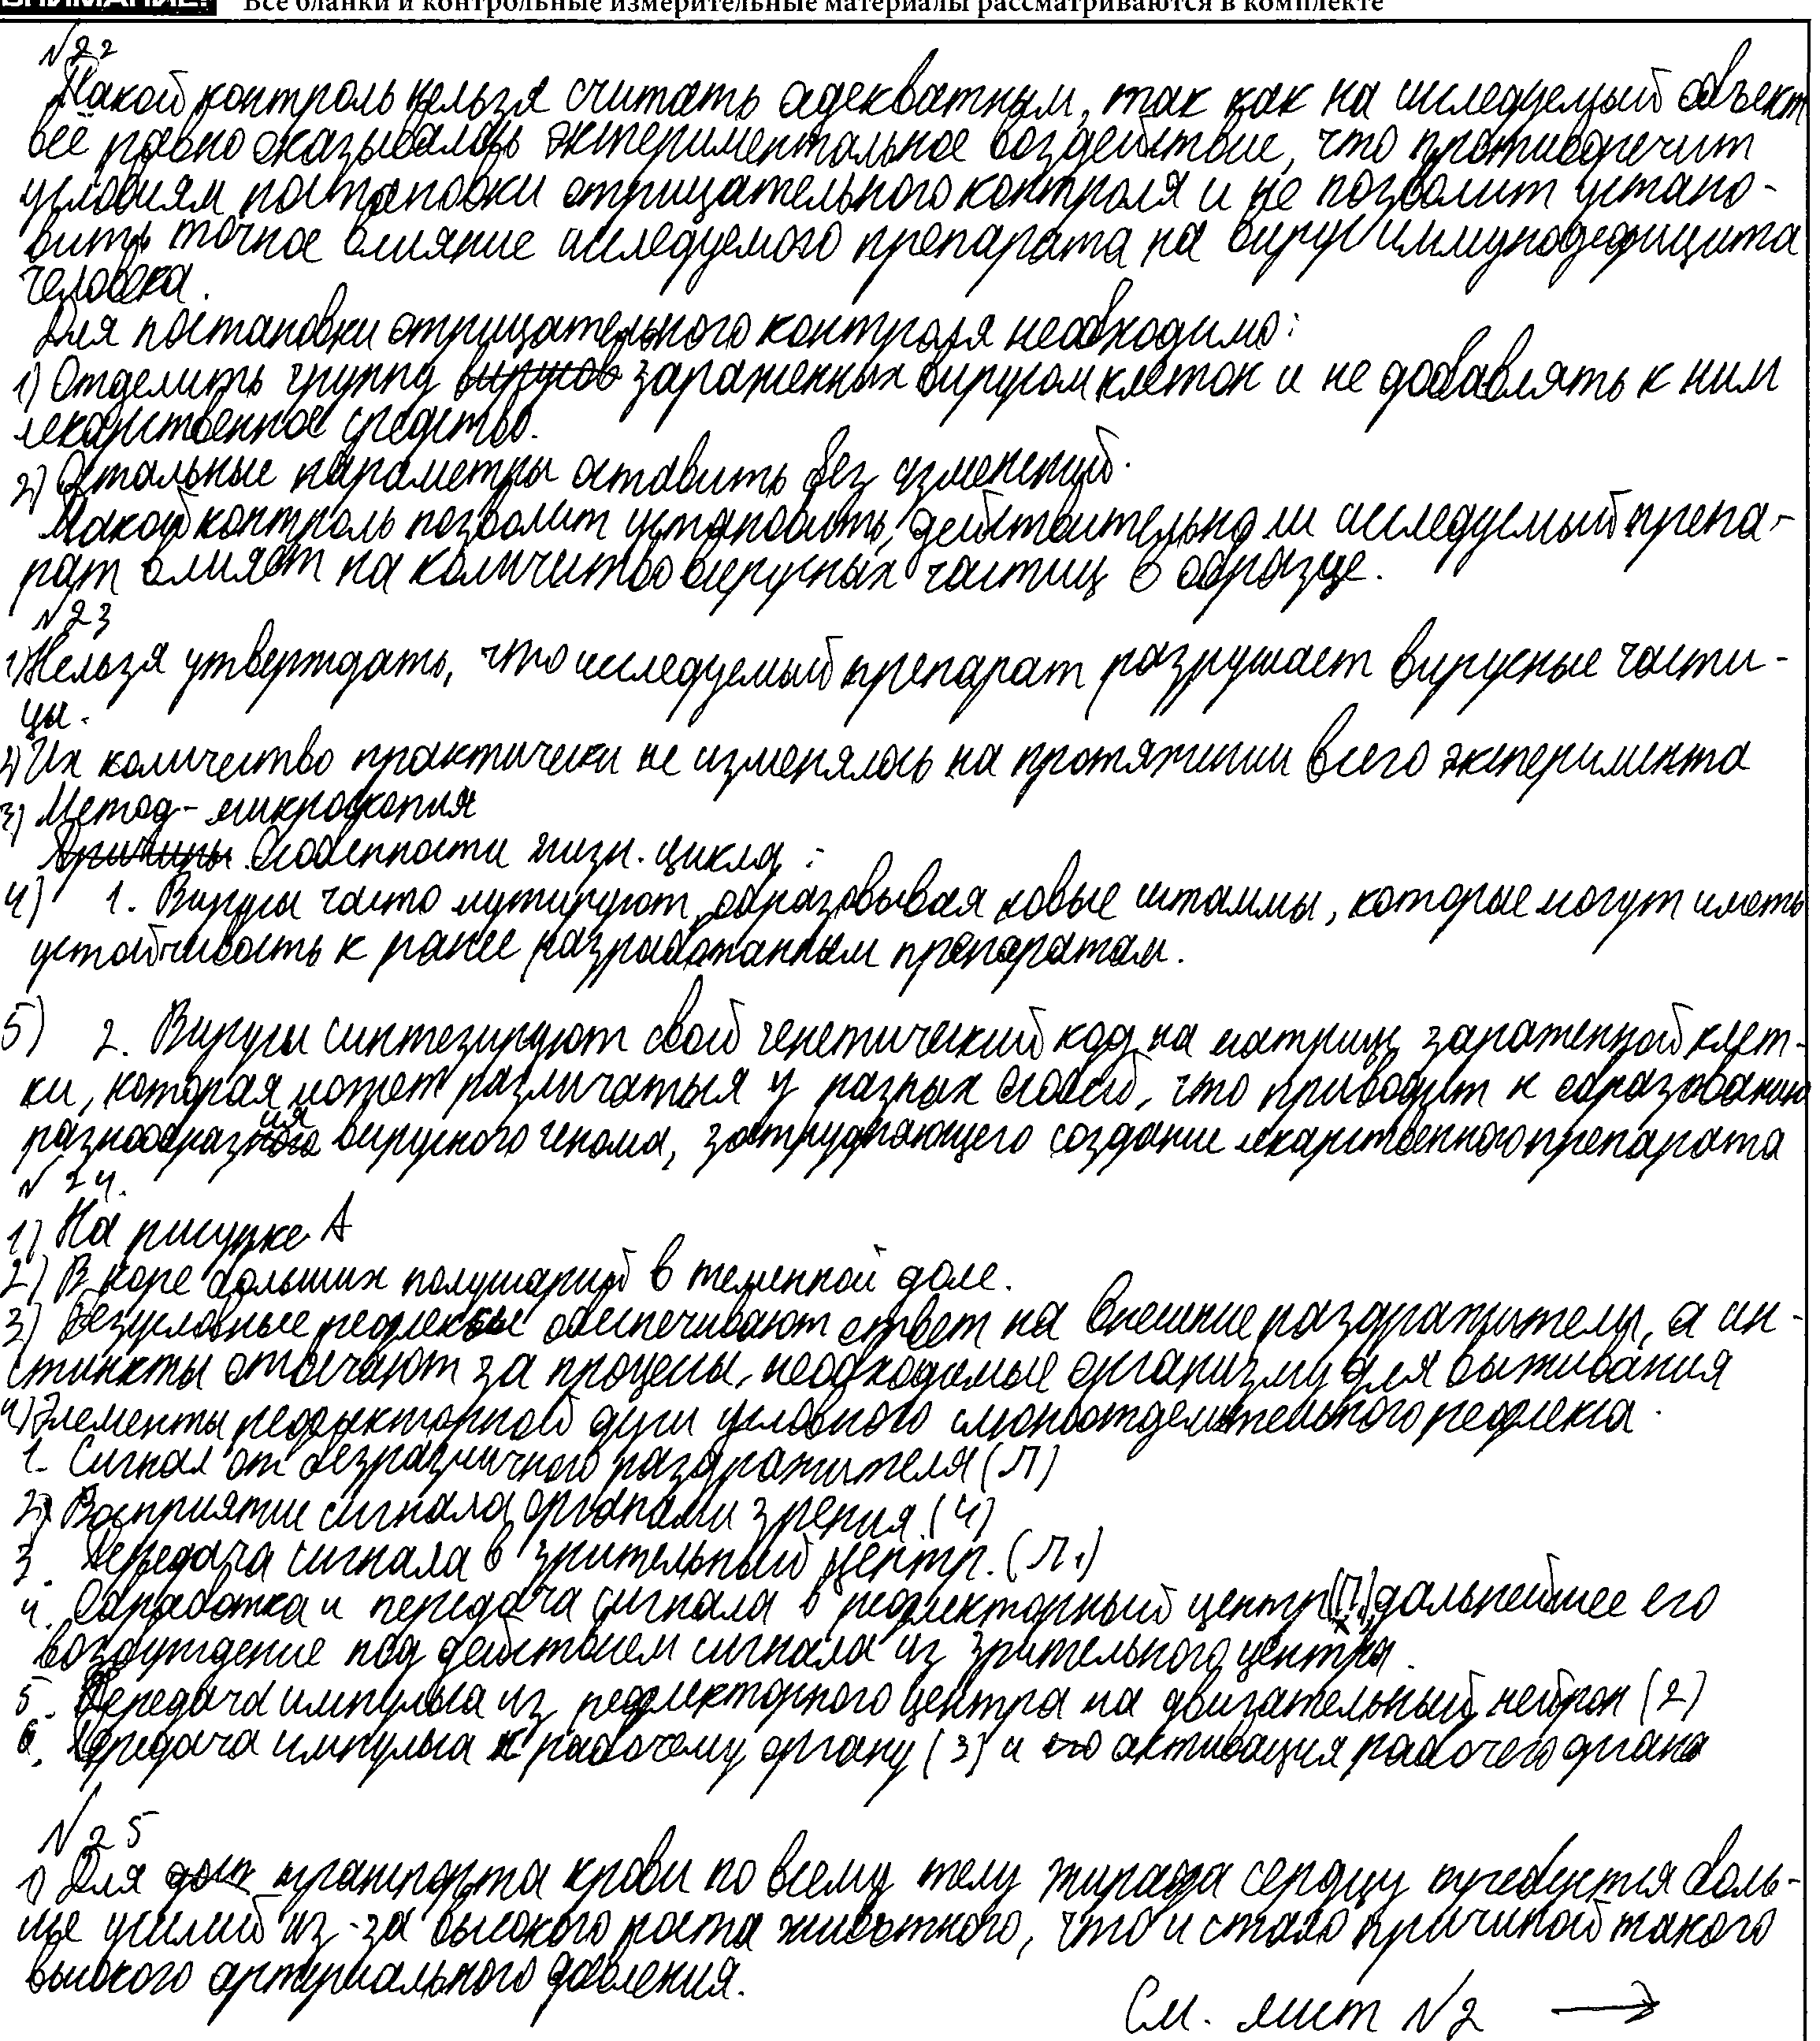 ВНИМАНИЕ! Все бланки и контрольные измерительные материалы рассматриваются в комплекте
№22
Такой контроль нельзя считать адекватным, так как на исследуемый объект
всё равно оказывалось экспериментальное воздействие, что противоречит
условиям постановки отрицательного контроля и не позволит устано-
вить точное влияние исследуемого препарата на вирус иммунодефицита
человека.
Для постановки отрицательного контроля необходимо:
1) Отделить группу вирусов зараженных вирусом клеток и не добавлять к ним
лекарственное средство.
2) Остальные параметры оставить без изменений.
Такой контроль позволит установить, действительно ли исследуемый препа-
рат влияет на количество вирусных частиц в образце.
№23
1) Нельзя утверждать, что исследуемый препарат разрушает вирусные части-
цы.
2) Их количество практически не изменялось на протяжении всего эксперимента
3) Метод - микроскопия
Причины Особенности жизн. цикла:
4) 1. Вирусы часто мутируют, образовывая новые штаммы, которые могут иметь
устойчивость к ранее разработанным препаратам.
5) 2. Вирусы синтезируют свой генетический код на матриц зараженной клет-
ки, которая может различаться у разных особей, что приводит к образованию
разнообразия вирусного генома, затрудняющего создание лекарственного препарата
№24.
1) На рисунке А
2) В коре больших полушарий в теменной доле.
3) Безусловные рефлексы обеспечивают ответ на внешние раздражители, а ин-
стинкты отвечают за процессы, необходимые организму для выживания
4) Элементы рефлекторной дуги условного слюноотделительного рефлекса.
1. Сигнал от безразличного раздражителя (Л)
2) Восприятие сигнала органами зрения. (Ч)
3. Передача сигнала в зрительный центр. (Л1)
4. Обработка и передача сигнала в рефлекторный центр (П), дальнейшее его
возбуждение под действием сигнала из зрительного центра.
5. Передача импульса из рефлекторного центра на двигательный нейрон (2)
6. Передача импульса к рабочему органу (3) и его активация рабочего органа
№25
1) Для транспорта крови по всему телу жирафа сердцу требуется боль-
ше усилий из-за высокого роста животного, что и стало причиной такого
высокого артериального давления.
См. лист №2 →